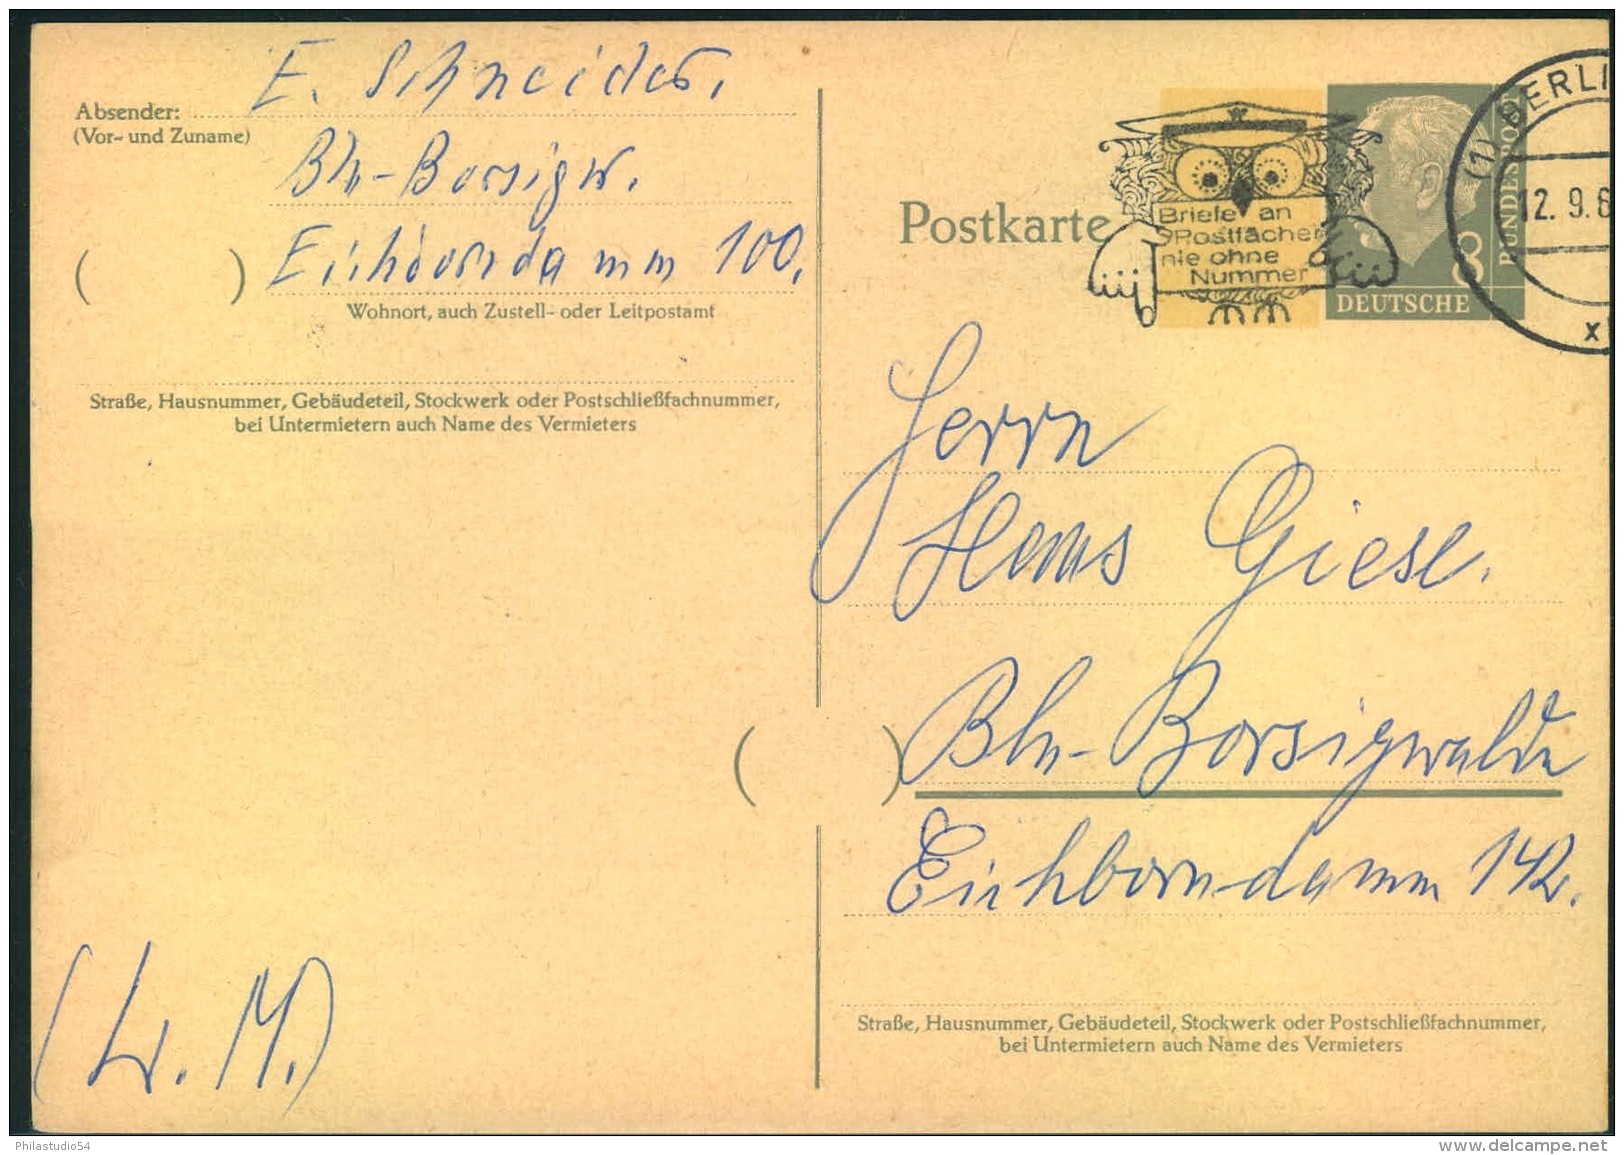 E. Schneider,
Absender:
(Vor- und Zuname)
Bln-Borsigw.
( ) Eichborndamm 100,
Wohnort, auch Zustell- oder Leitpostamt
Straße, Hausnummer, Gebäudeteil, Stockwerk oder Postschließfachnummer,
bei Untermietern auch Name des Vermieters
Postkarte
Briefe an
Postfächer
nie ohne
Nummer
8
DEUTSCHE
BUNDESPOST
(1) BERLI
12. 9. 6
x
Herrn
Hans Giese.
( ) Bln-Borsigwalde
Eichborndamm 142.
Straße, Hausnummer, Gebäudeteil, Stockwerk oder Postschließfachnummer,
bei Untermietern auch Name des Vermieters
Philastudio54
www.delcampe.net